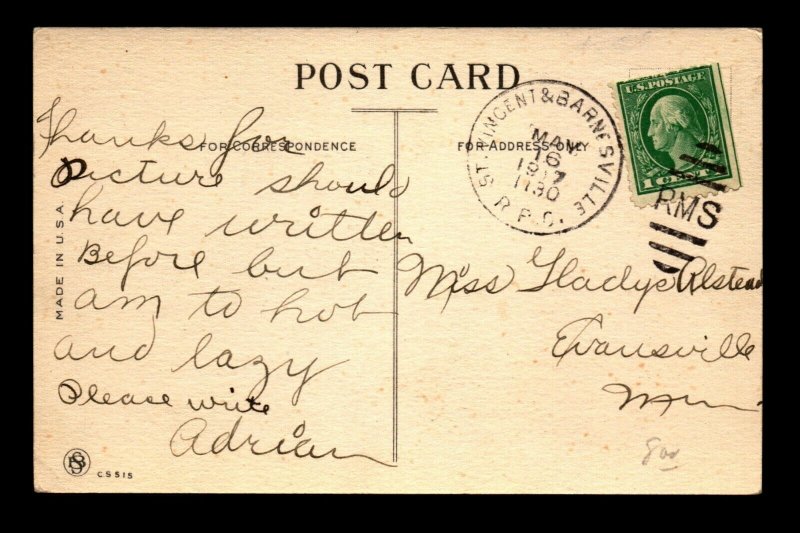 POST CARD
FOR CORRESPONDENCE
FOR ADDRESS ONLY
Thanks for
Picture should
have written
Before but
am to hot
and lazy
Please write
Adrian
MADE IN U.S.A.
CSS15
ST. VINCENT & BARNESVILLE
16
1917
R.P.O.
U.S. POSTAGE
RMS
Miss Gladys Olstead
Evansville
Minn